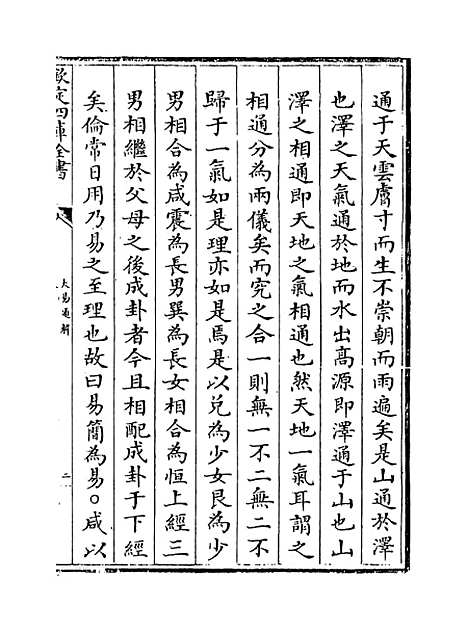 通于天雲膚寸而生不崇朝而雨遍矣是山通於澤
也澤之天氣通於地而水出高源即澤通于山也山
澤之相通即天地之氣相通也然天地一氣耳謂之
相通分為兩儀矣而究之合一則無一不二無二不
歸于一氣如是理亦如是焉是以兌為少女艮為少
男相合為咸震為長男巽為長女相合為恒上經三
男相繼於父母之後成卦者今且相配成卦于下經
矣倫常日用乃易之至理也故曰易簡為易○咸以
欽定四庫全書
大易通解
二